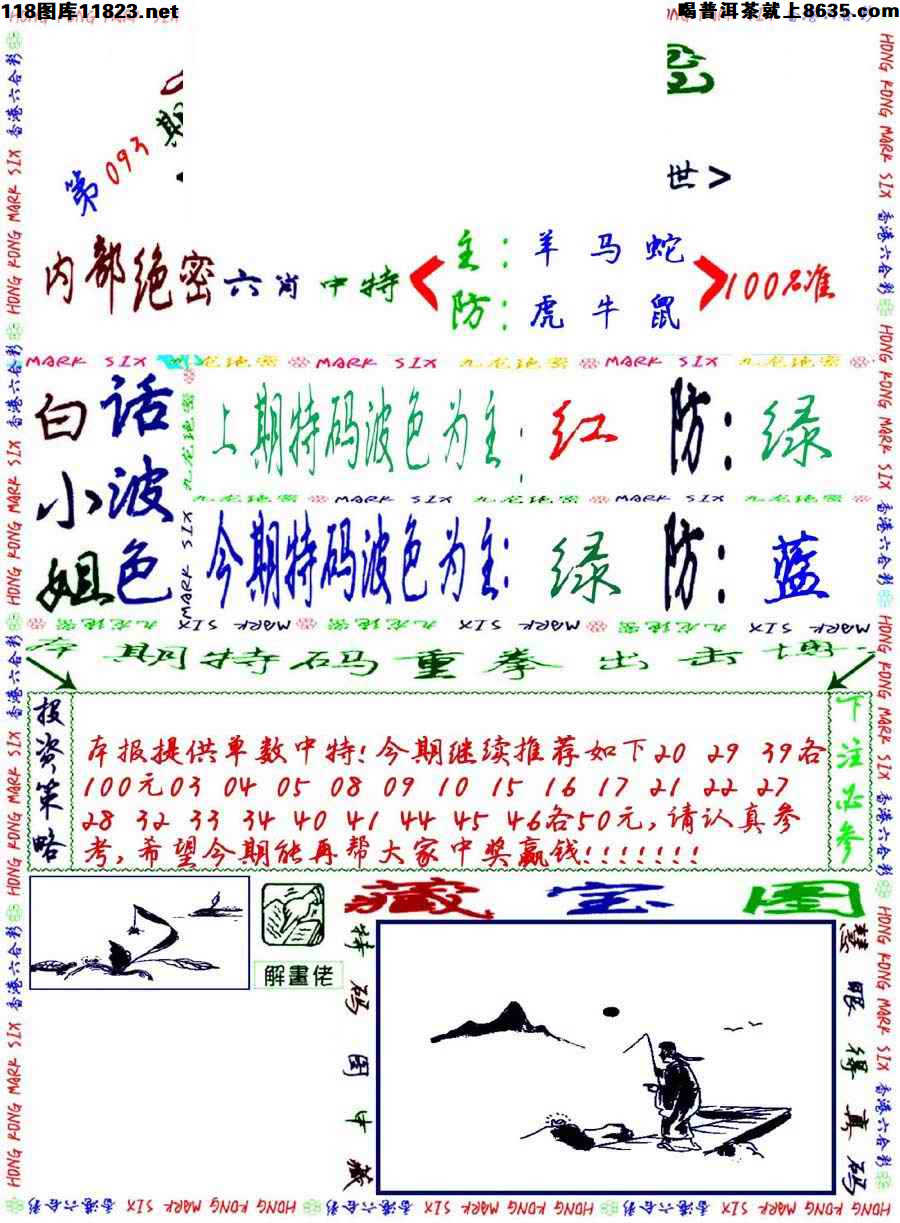 118图库11823.net
喝普洱茶就上8635.com
第093期
世>
内部绝密六肖中特
主:羊马蛇
防:虎牛鼠
100%准
白话
小波
姐色
上期特码波色为主:红 防:绿
今期特码波色为主:绿 防:蓝
本期特码重拳出击
投资策略
本报提供单数中特!今期继续推荐如下20 29 39各
100元03 04 05 08 09 10 15 16 17 21 22 27
28 32 33 34 40 41 44 45 46各50元,请认真参
考,希望今期能再帮大家中奖赢钱!!!!!!!
下注必参
解畫佬
藏宝图
特码图中藏
慧眼得真码
HONG KONG MARK SIX 香港六合彩
九龙绝密 MARK SIX